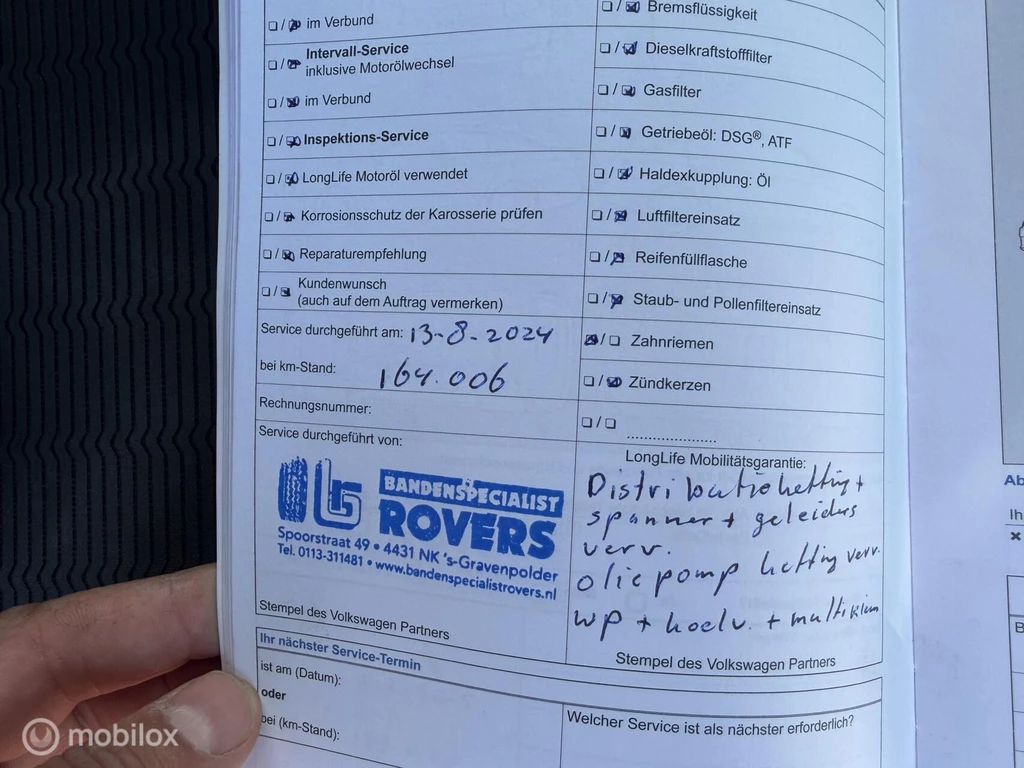 im Verbund
Intervall-Service
inklusive Motorölwechsel
im Verbund
Inspektions-Service
LongLife Motoröl verwendet
Korrosionsschutz der Karosserie prüfen
Reparaturempfehlung
Kundenwunsch
(auch auf dem Auftrag vermerken)
Service durchgeführt am: 13-8-2024
bei km-Stand: 164.006
Rechnungsnummer:
Service durchgeführt von:
BANDENSPECIALIST
ROVERS
Spoorstraat 49 • 4431 NK 's-Gravenpolder
Tel. 0113-311481 • www.bandenspecialistrovers.nl
Stempel des Volkswagen Partners
Bremsflüssigkeit
Dieselkraftstofffilter
Gasfilter
Getriebeöl: DSG®, ATF
Haldexkupplung: Öl
Luftfiltereinsatz
Reifenfüllflasche
Staub- und Pollenfiltereinsatz
Zahnriemen
Zündkerzen
LongLife Mobilitätsgarantie:
Distributieketting +
spanner + geleiders
verv.
olie pomp ketting verv.
wp + koelv. + multiriem
Stempel des Volkswagen Partners
Ihr nächster Service-Termin
ist am (Datum):
oder
bei (km-Stand):
Welcher Service ist als nächster erforderlich?
Ab
Ih
B
mobilox